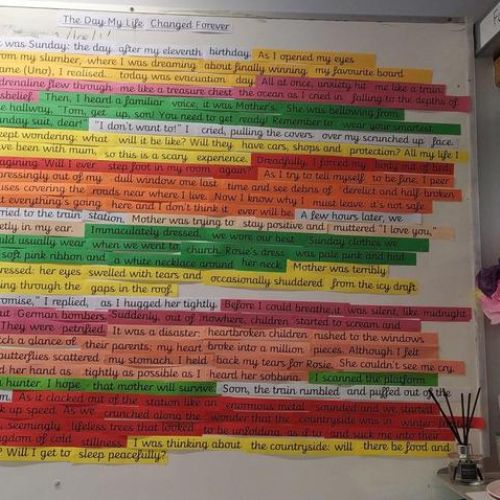 The Day My Life Changed Forever
was Sunday: the day after my eleventh birthday. As I opened my eyes
from my slumber, where I was dreaming about finally winning my favourite board
ame (Uno), I realised... today was evacuation day. All at once, anxiety hit me like a train,
adrenaline flew through me like a treasure chest the ocean as I cried in falling to the depths of
isbelief. Then, I heard a familiar voice, it was Mother's. She was bellowing from
e hallway, "Tom, get up, son! You need to get ready! Remember to wear your smartest
unday suit, dear!" "I don't want to!" I cried, pulling the covers over my scrunched up face.
cept wondering: what will it be like? Will they have cars, shops and protection? All my life I
ve been with mum, so this is a scary experience. Dreadfully, I forced my body out of bed,
agining Will I ever step foot in my room again? As I try to tell myself to be fine, I peer
pressingly out of my dull window one last time and see debris of derelict and half-broken
uses covering the roads near where I live. Now I know why I must leave: it's not safe
t everything's going here and I don't think it ever will be. A few hours later, we
ned to the train station. Mother was trying to stay positive and muttered "I love you,"
etly in my ear. Immaculately dressed, we wore our best Sunday clothes we
uld usually wear when we went to church. Rosie's dress was pale pink and had
soft pink ribbon and a white necklace around her neck. Mother was terribly
ressed: her eyes swelled with tears and occasionally shuddered from the icy draft
ing through the gaps in the roof.
romise," I replied, as I hugged her tightly. Before I could breathe, it was silent, like midnight
ut German bombers. Suddenly, out of nowhere, children started to scream and
They were petrified. It was a disaster: heartbroken children rushed to the windows
tch a glance of their parents; my heart broke into a million pieces. Although I felt
butterflies scattered my stomach, I held back my tears for Rosie. She couldn't see me cry.
d her hand as tightly as possible as I heard her sobbing. I scanned the platform
a hunter. I hope that mother will survive. Soon, the train rumbled and puffed out of the
m. As it clacked out of the station like an enormous metal sounded and we started
k up speed. As we crunched along the wonder that the countryside was in winter
seemingly lifeless trees that looked to be unfolding as if to and suck me into their
ngdom of cold stillness. I was thinking about the countryside: will there be food and
? Will I get to sleep peacefully?